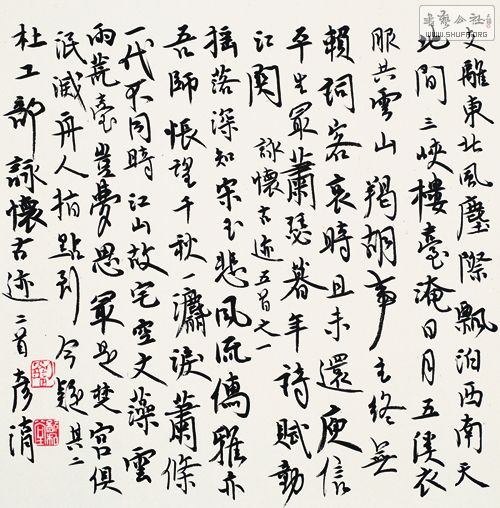 支離東北風塵際飄泊西南天
地間三峽樓臺淹日月五溪衣
服共雲山羯胡事主終無
賴詞客哀時且未還庾信
平生最蕭瑟暮年詩賦動
江關
詠懷古迹五首之一
搖落深知宋玉悲風流儒雅亦
吾師悵望千秋一灑淚蕭條
一代不同時江山故宅空文藻雲
雨荒臺豈夢思最是楚宮俱
泯滅舟人指點到今疑其二
杜工部詠懷古迹二首彥湝
WWW.SHUFA.ORG